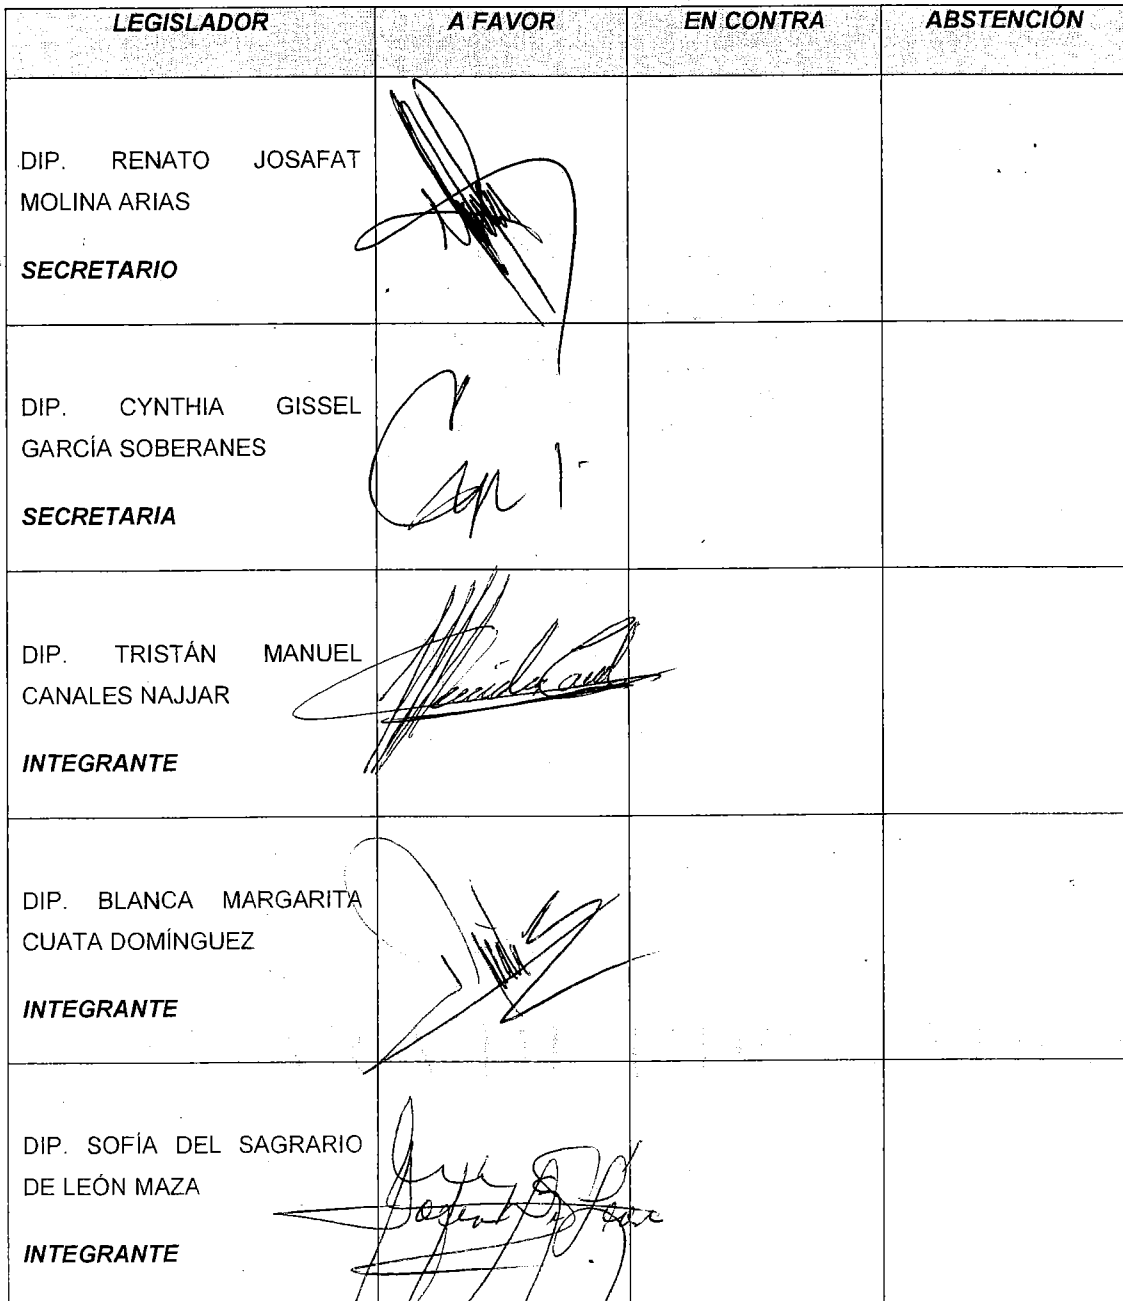 LEGISLADOR A FAVOR EN CONTRA ABSTENCIÓN
DIP. RENATO JOSAFAT
MOLINA ARIAS
SECRETARIO
DIP. CYNTHIA GISSEL
GARCÍA SOBERANES
SECRETARIA
DIP. TRISTÁN MANUEL
CANALES NAJJAR
INTEGRANTE
DIP. BLANCA MARGARITA
CUATA DOMÍNGUEZ
INTEGRANTE
DIP. SOFÍA DEL SAGRARIO
DE LEÓN MAZA
INTEGRANTE